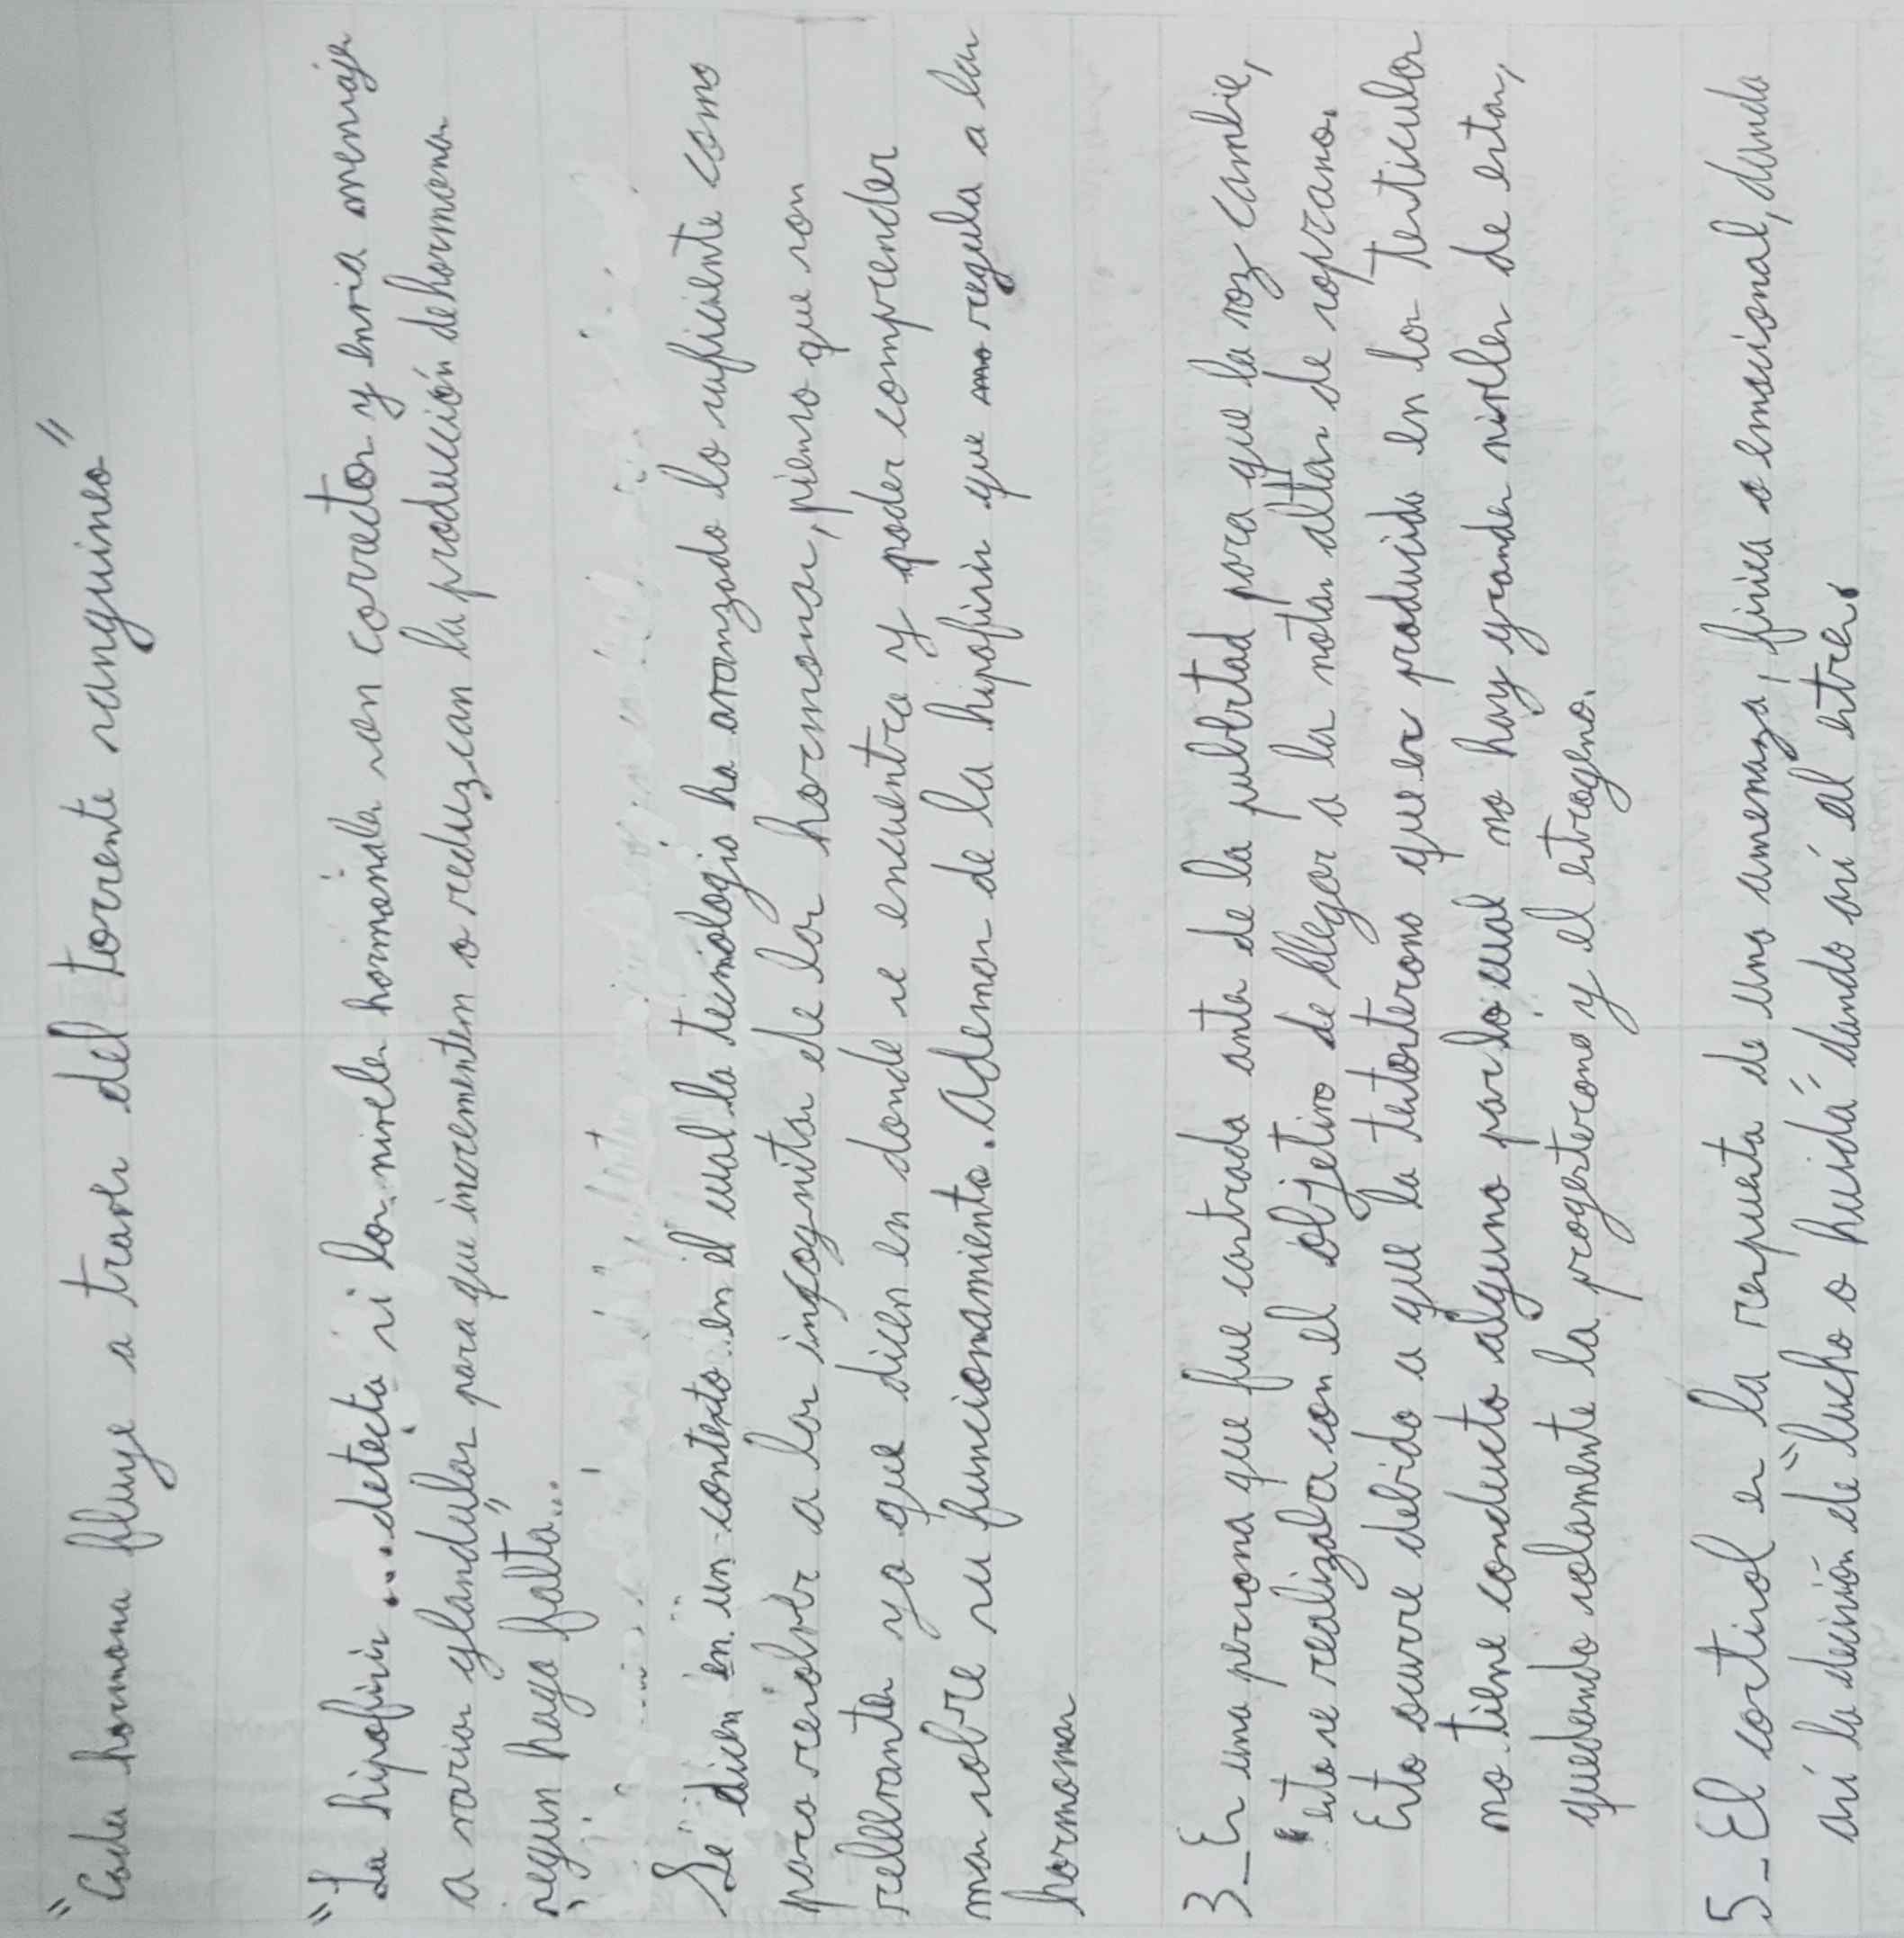 "Cada hormona fluye a traves del torrente sanguineo"
"La hipofisis ... detecta si los niveles hormonales son correctos y envia mensajes
a varias glandulas para que incrementen o reduzcan la producción de hormonas
segun haga falta..."
Se dicen en un contexto en el cual la tecnologia ha avanzado lo suficiente como
para resolver a las incognitas de las hormonas, pienso que son
rellevantes ya que dicen en donde se encuentra y poder comprender
mas sobre su funcionamiento. Ademas de la hipofisis que regula a las
hormonas
3_Es una persona que fue castrada antes de la pubertad para que la voz cambie,
esto se realizaba con el objetivo de llegar a la notas altas de soprano.
Esto ocurre debido a que la testosterona que es producida en los testiculos
no tiene conducto alguno por lo cual no hay grandes niveles de estas,
quedando solamente la progesterona y el estrogeno.
5_El cortisol es la respuesta de una amenaza, fisica o emocional, dando
asi la decisión de "lucha o huida" dando asi al estres.